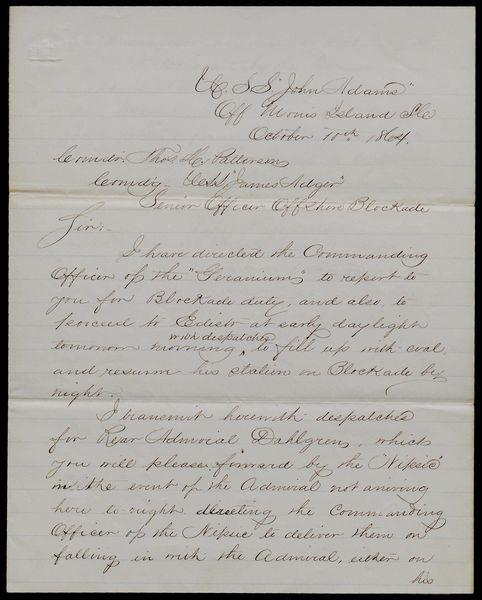 U.S.S. "John Adams"
Off Morris Island S.C.
October 10th 1864.
Comdr. Thos. H. Patterson
Comdg. U.S.S. "James Adger"
Senior Officer Offshore Blockade
Sir:-
I have directed the Commanding
Officer of the "Geranium" to report to
you for Blockade duty, and also to
proceed to Edisto at early daylight
with despatches
tomorrow morning, to fill up with coal
and resume his station on Blockade by
night.
I transmit herewith despatches
for Rear Admiral Dahlgren, which
you will please forward by the "Nipsic"
in the event of the Admiral not arriving
here to-night directing the Commanding
Officer of the Nipsic to deliver them on
falling in with the Admiral, either on
his